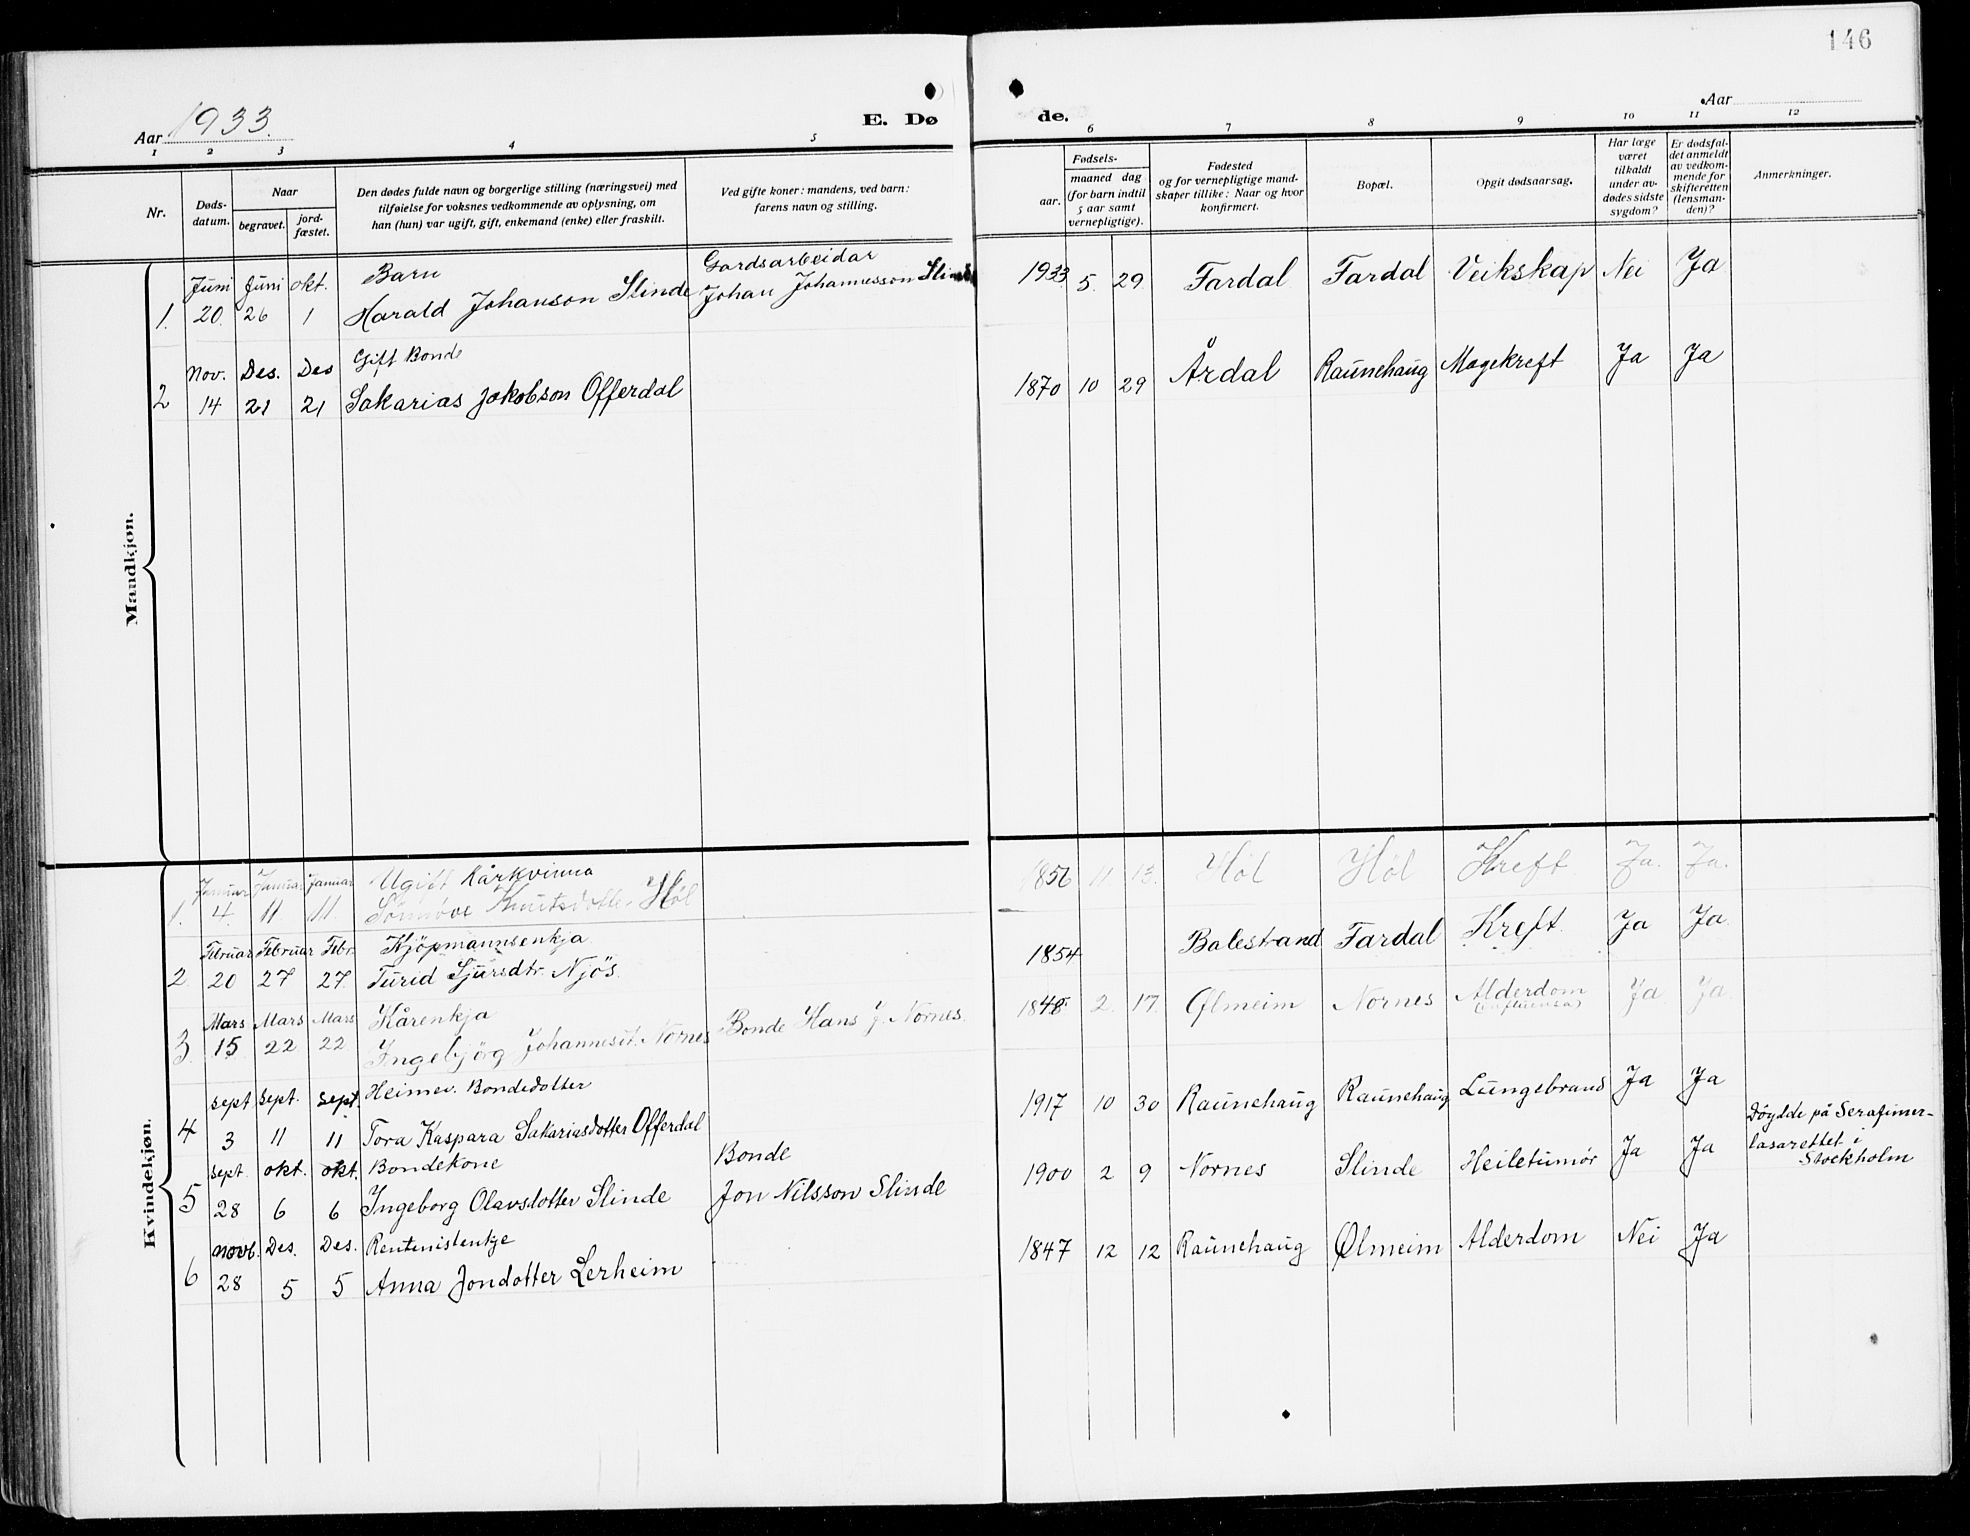 146
Aar 1933.
E. Dø
de.
Aar
1 2 3 4 5 6 7 8 9 10 11 12
Nr.
Døds-
datum.
Naar
begravet.
jord-
fæstet.
Den dødes fulde navn og borgerlige stilling (næringsvei) med
tilføielse for voksnes vedkommende av oplysning, om
han (hun) var ugift, gift, enkemand (enke) eller fraskilt.
Ved gifte koner: mandens, ved barn:
farens navn og stilling.
Fødsels-
aar.
maaned dag
(for barn indtil
5 aar samt
vernepligtige).
Fødested
og for vernepligtige mand-
skaper tillike: Naar og hvor
konfirmert.
Bopæl.
Opgit dødsaarsag.
Har læge
været
tilkaldt
under av-
dødes sidste
sygdom?
Er dødsfal-
det anmeldt
av vedkom-
mende for
skifteretten
(lensman-
den)?
Anmerkninger.
Mandkjøn.
Juni Juni okt. Barn Gardsarbeidar
1. 20. 26 1 Harald Johanson Slinde Johan Johannesson Slinde 1933 5. 29 Fardal Fardal Veikskap Nei Ja
Nov. Des. Des Gift Bonde
2 14 21 21 Sakarias Jakobson Offerdal 1870 10 29 Årdal Raunehaug Magekreft Ja Ja
Kvindekjøn.
Januar Januar Januar Ugift Kårkvinna
1. 4. 11. 11. Synnøve Knutsdotter Høl 1856 11 13. Høl Høl Kreft Ja. Ja.
Februar Februar Febr. Kjöpmannsenkja
2 20 27 27 Turid Sjursdtr. Njøs. 1854 Balestrand Fardal Kreft Ja Ja
Mars Mars Mars Kårenkja
3 15 22 22 Ingebjörg Johannesdt. Nornes Bonde Hans J. Nornes. 1848 2. 17. Ølmeim Nornes Alderdom (influensa) Ja Ja
sept sept. sept. Heimev. Bondedotter
4 3 11 11 Tora Kaspara Sakariasdotter Offerdal 1917 10 30 Raunehaug Raunehaug Lungebrand Ja Ja
sept okt. okt. Bondekone Bonde
5 28 6 6 Ingeborg Olavsdotter Slinde Jon Nilsson Slinde 1900 2 9 Nornes Slinde Heiletumør Ja Ja
Döydde på Serafimer-
lasarettet i
Stockholm
Novb. Des. Des. Rentenistenkje
6 28 5 5 Anna Jondotter Lerheim 1847 12 12 Raunehaug Ølmeim Alderdom Nei Ja